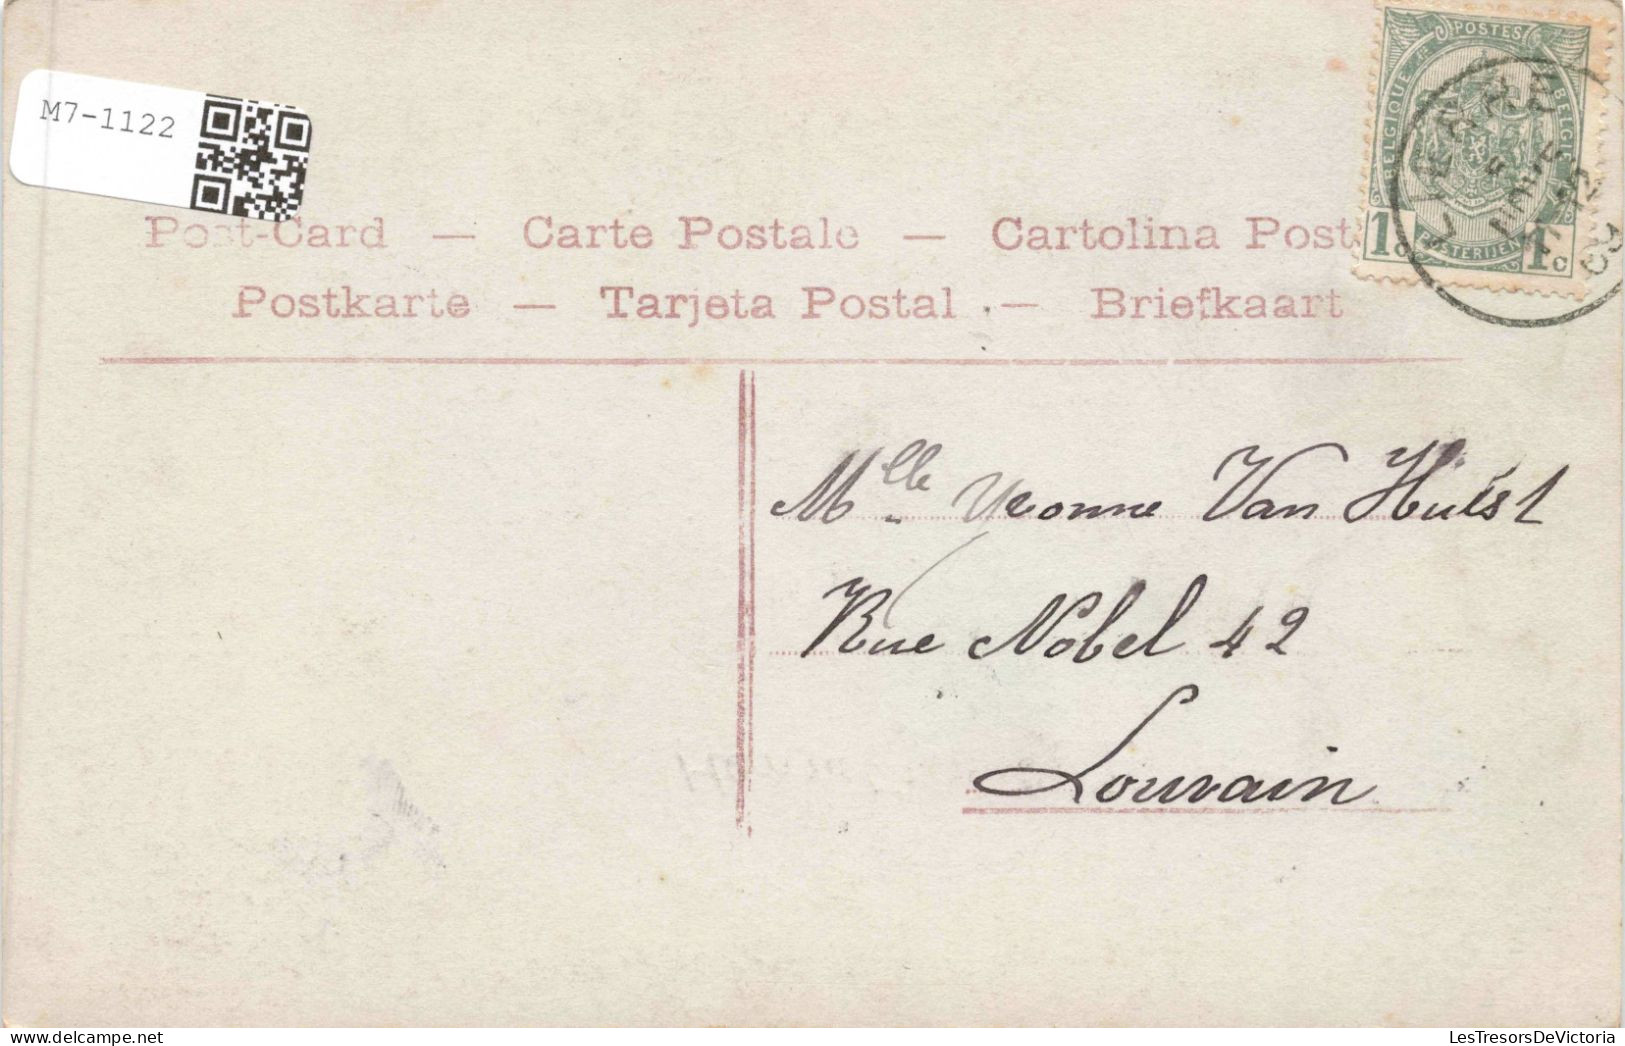 M7-1122
POSTES
BELGIQUE
BELGIE
POSTERIJEN
1c 1c
Post-Card — Carte Postale — Cartolina Post
Postkarte — Tarjeta Postal — Briefkaart
Mlle Yvonne Van Hulst
Rue Nobel 42
Louvain
LesTresorsDeVictoria